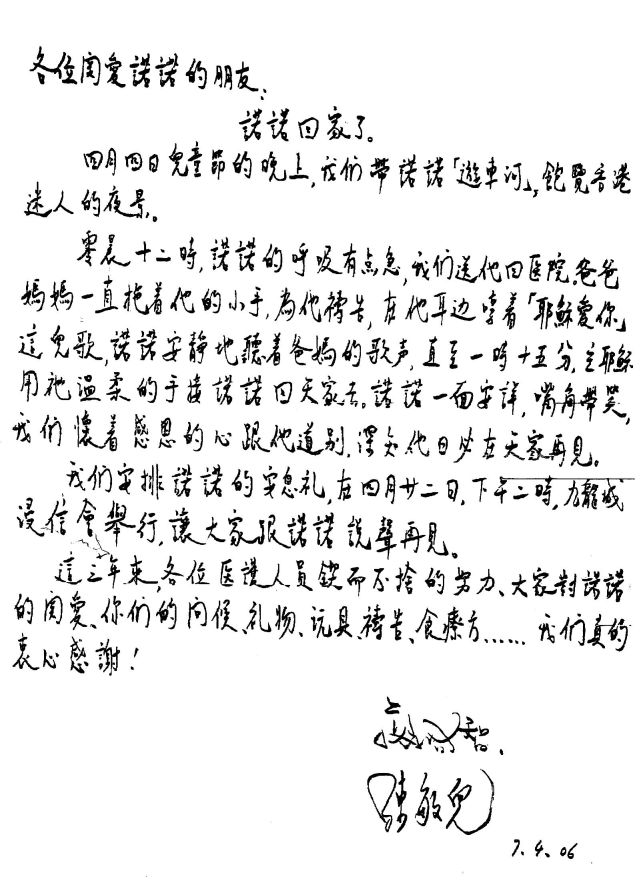 各位関愛諾諾的朋友:
諾諾回家了。
四月四日兒童節的晚上,我们帶諾諾「遊車河」,飽覽香港
迷人的夜景。
零晨十二時,諾諾的呼吸有点急,我们送他回医院。爸爸
媽媽一直拖着他的小手,為他禱告,在他耳边唱着「耶穌愛你」
這兒歌,諾諾安静地聽着爸媽的歌声,直至一時十五分,主耶穌
用祂温柔的手接諾諾回天家去。諾諾一面安詳,嘴角帶笑,
我们懷着感恩的心跟他道别,深知他日必在天家再見。
我们安排諾諾的安息礼,在四月廿二日,下午二時,九龍城
浸信會舉行,讓大家跟諾諾說聲再見。
這三年來,各位医護人員鍥而不捨的努力、大家對諾諾
的関愛、你们的问候、礼物、玩具、禱告、食療方…… 我们真的
衷心感謝!
陳敏兒
7.4.06